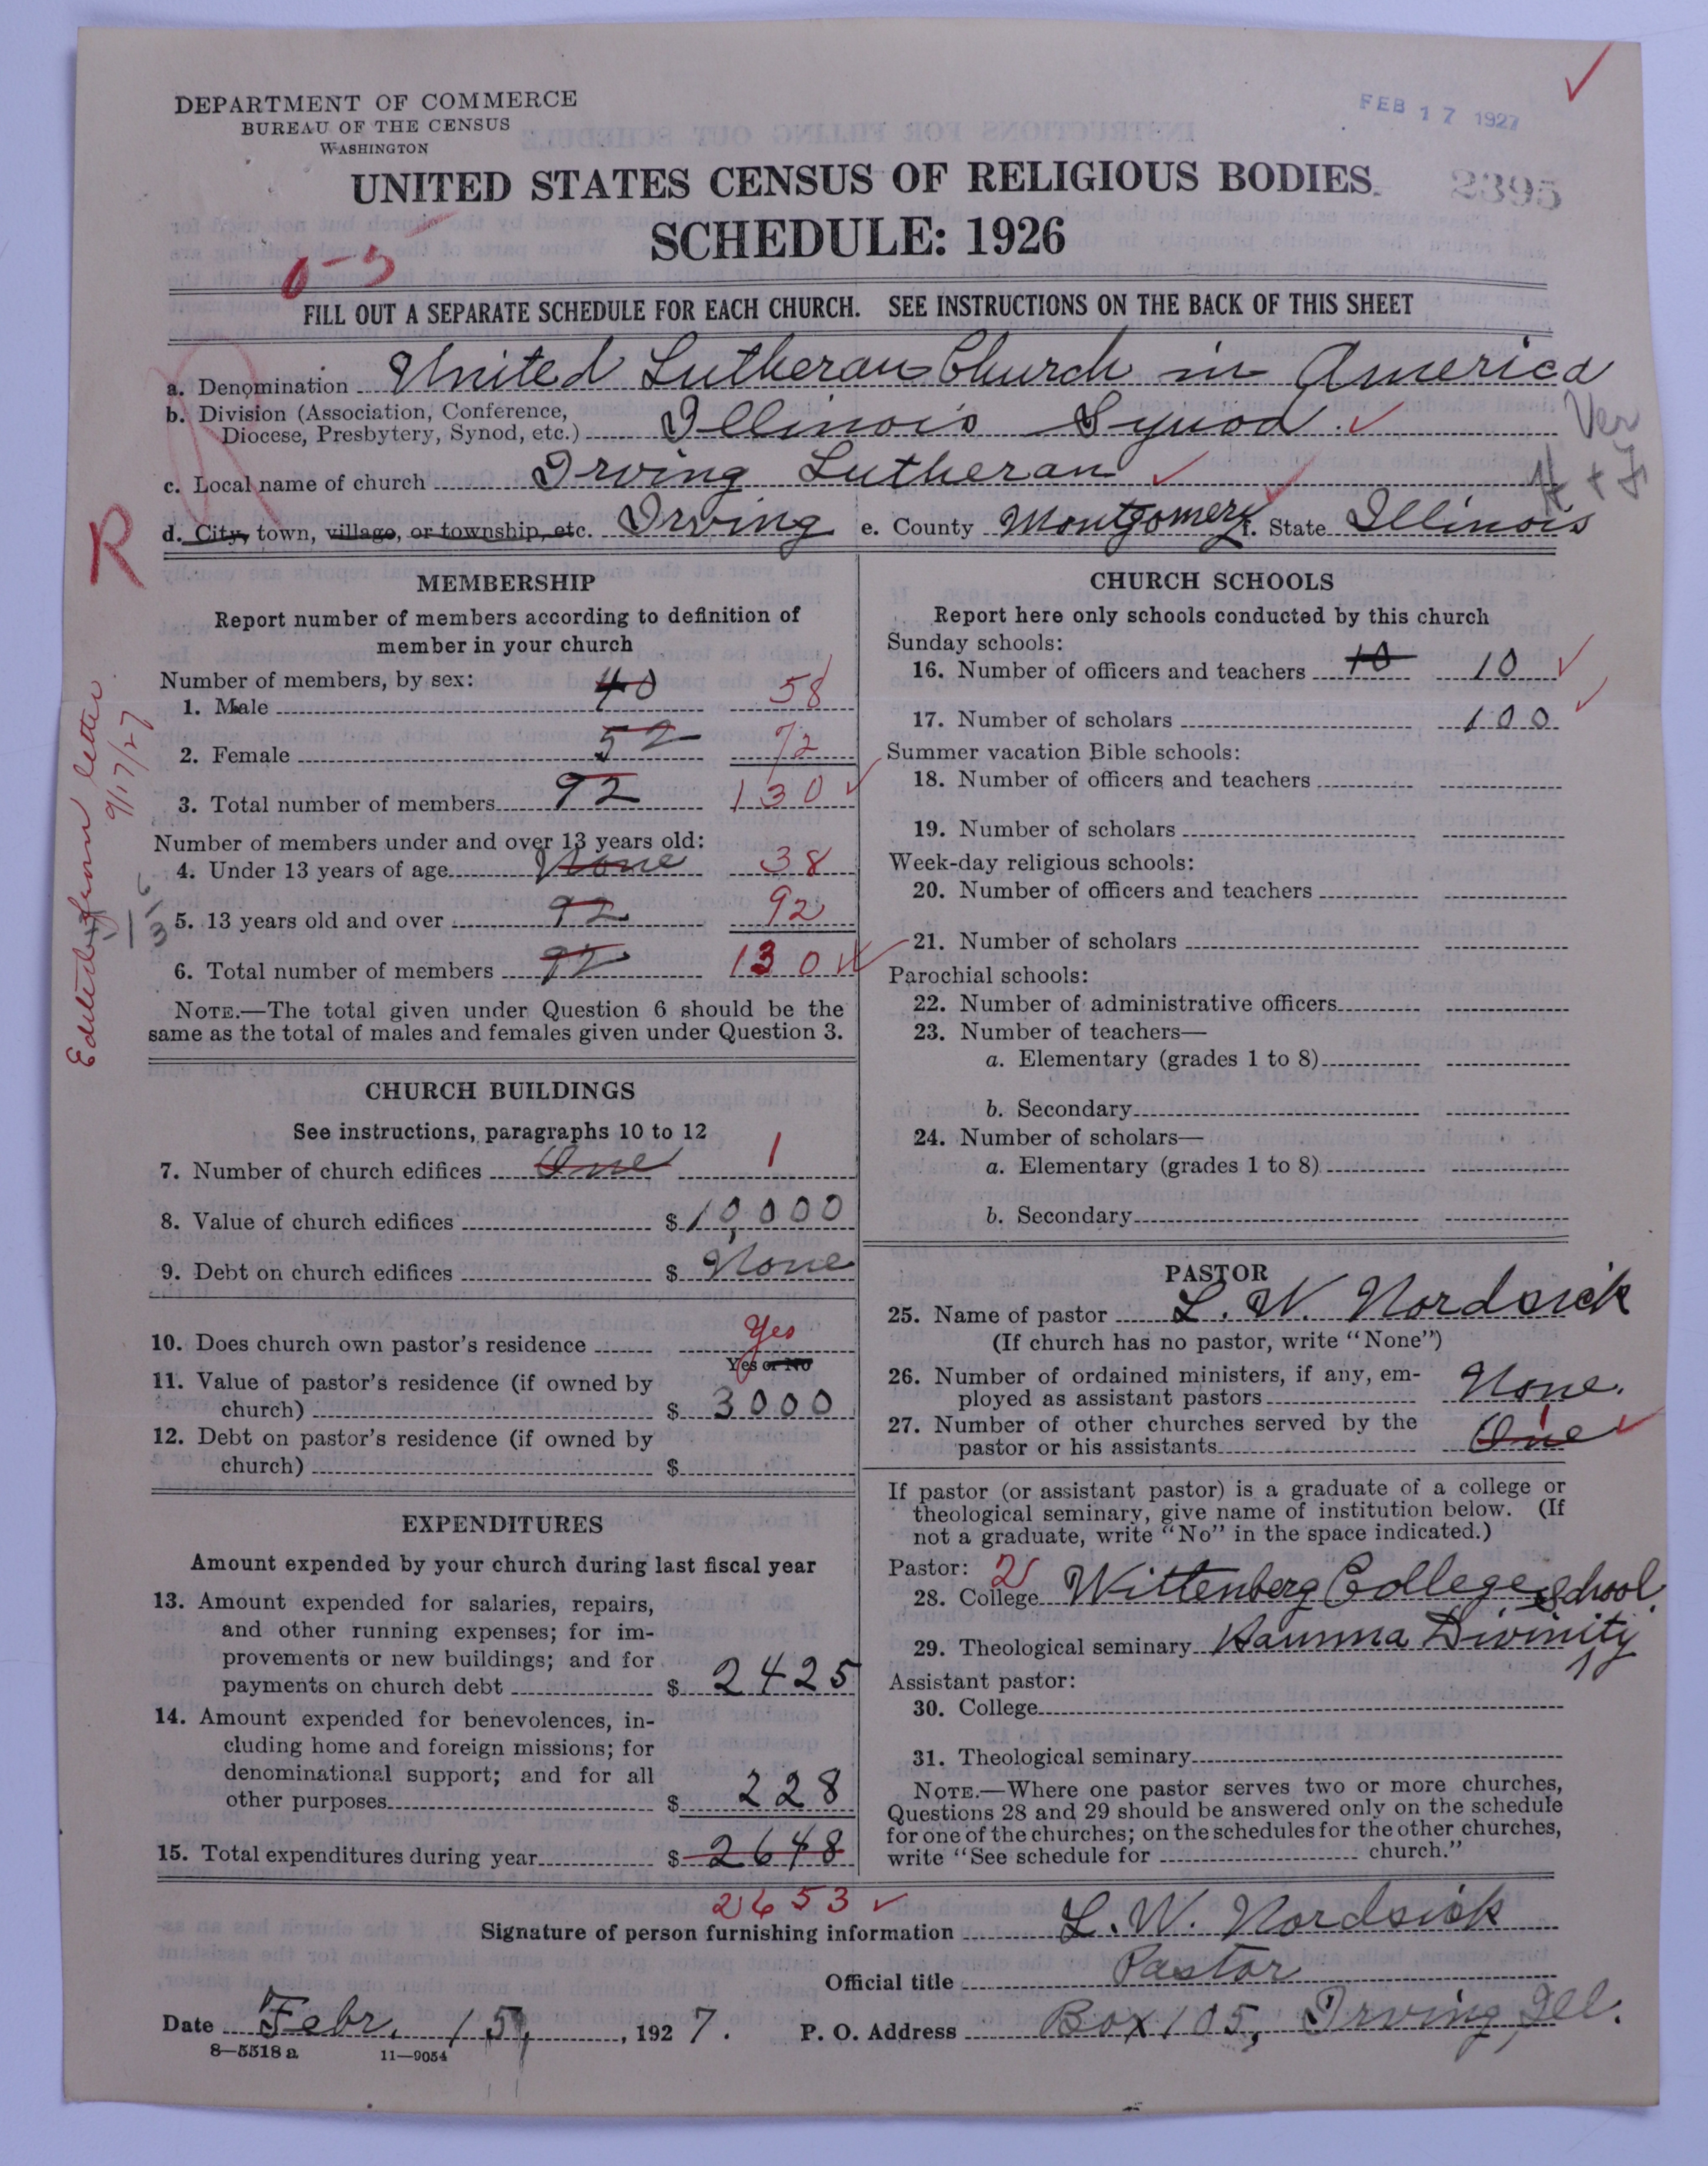 DEPARTMENT OF COMMERCE
BUREAU OF THE CENSUS
WASHINGTON
FEB 17 1927
UNITED STATES CENSUS OF RELIGIOUS BODIES
2395
SCHEDULE: 1926
0-5
FILL OUT A SEPARATE SCHEDULE FOR EACH CHURCH. SEE INSTRUCTIONS ON THE BACK OF THIS SHEET
a. Denomination United Lutheran Church in America
b. Division (Association, Conference,
Diocese, Presbytery, Synod, etc.) Illinois Synod.
Ver
c. Local name of church Irving Lutheran
R
d. City, town, village, or township, etc. Irving e. County Montgomery f. State Illinois
Edited from letter
9/17/27
MEMBERSHIP
Report number of members according to definition of
member in your church
Number of members, by sex:
1. Male 40 58
2. Female 52 72
3. Total number of members 92 130
Number of members under and over 13 years old:
4. Under 13 years of age None 38
5. 13 years old and over 92 92
6. Total number of members 92 130
NOTE.—The total given under Question 6 should be the
same as the total of males and females given under Question 3.
CHURCH BUILDINGS
See instructions, paragraphs 10 to 12
7. Number of church edifices One 1
8. Value of church edifices $ 10,000
9. Debt on church edifices $ None
10. Does church own pastor's residence Yes
Yes or No
11. Value of pastor's residence (if owned by
church) $ 3000
12. Debt on pastor's residence (if owned by
church) $
EXPENDITURES
Amount expended by your church during last fiscal year
13. Amount expended for salaries, repairs,
and other running expenses; for im-
provements or new buildings; and for
payments on church debt $ 2425
14. Amount expended for benevolences, in-
cluding home and foreign missions; for
denominational support; and for all
other purposes $ 228
15. Total expenditures during year $ 2648
2653
CHURCH SCHOOLS
Report here only schools conducted by this church
Sunday schools:
16. Number of officers and teachers 10 10
17. Number of scholars 100
Summer vacation Bible schools:
18. Number of officers and teachers
19. Number of scholars
Week-day religious schools:
20. Number of officers and teachers
21. Number of scholars
Parochial schools:
22. Number of administrative officers
23. Number of teachers—
a. Elementary (grades 1 to 8)
b. Secondary
24. Number of scholars—
a. Elementary (grades 1 to 8)
b. Secondary
PASTOR
25. Name of pastor L. W. Nordsick
(If church has no pastor, write "None")
26. Number of ordained ministers, if any, em-
ployed as assistant pastors None.
27. Number of other churches served by the
pastor or his assistants One 1
If pastor (or assistant pastor) is a graduate of a college or
theological seminary, give name of institution below. (If
not a graduate, write "No" in the space indicated.)
Pastor: 2
28. College Wittenberg College
29. Theological seminary Hamma Divinity School
Assistant pastor:
30. College
31. Theological seminary
NOTE.—Where one pastor serves two or more churches,
Questions 28 and 29 should be answered only on the schedule
for one of the churches; on the schedules for the other churches,
write "See schedule for church."
Signature of person furnishing information L. W. Nordsick
Official title Pastor
Date Febr. 15, 1927. P. O. Address Box 105, Irving, Ill.
8—5518 a 11—9054